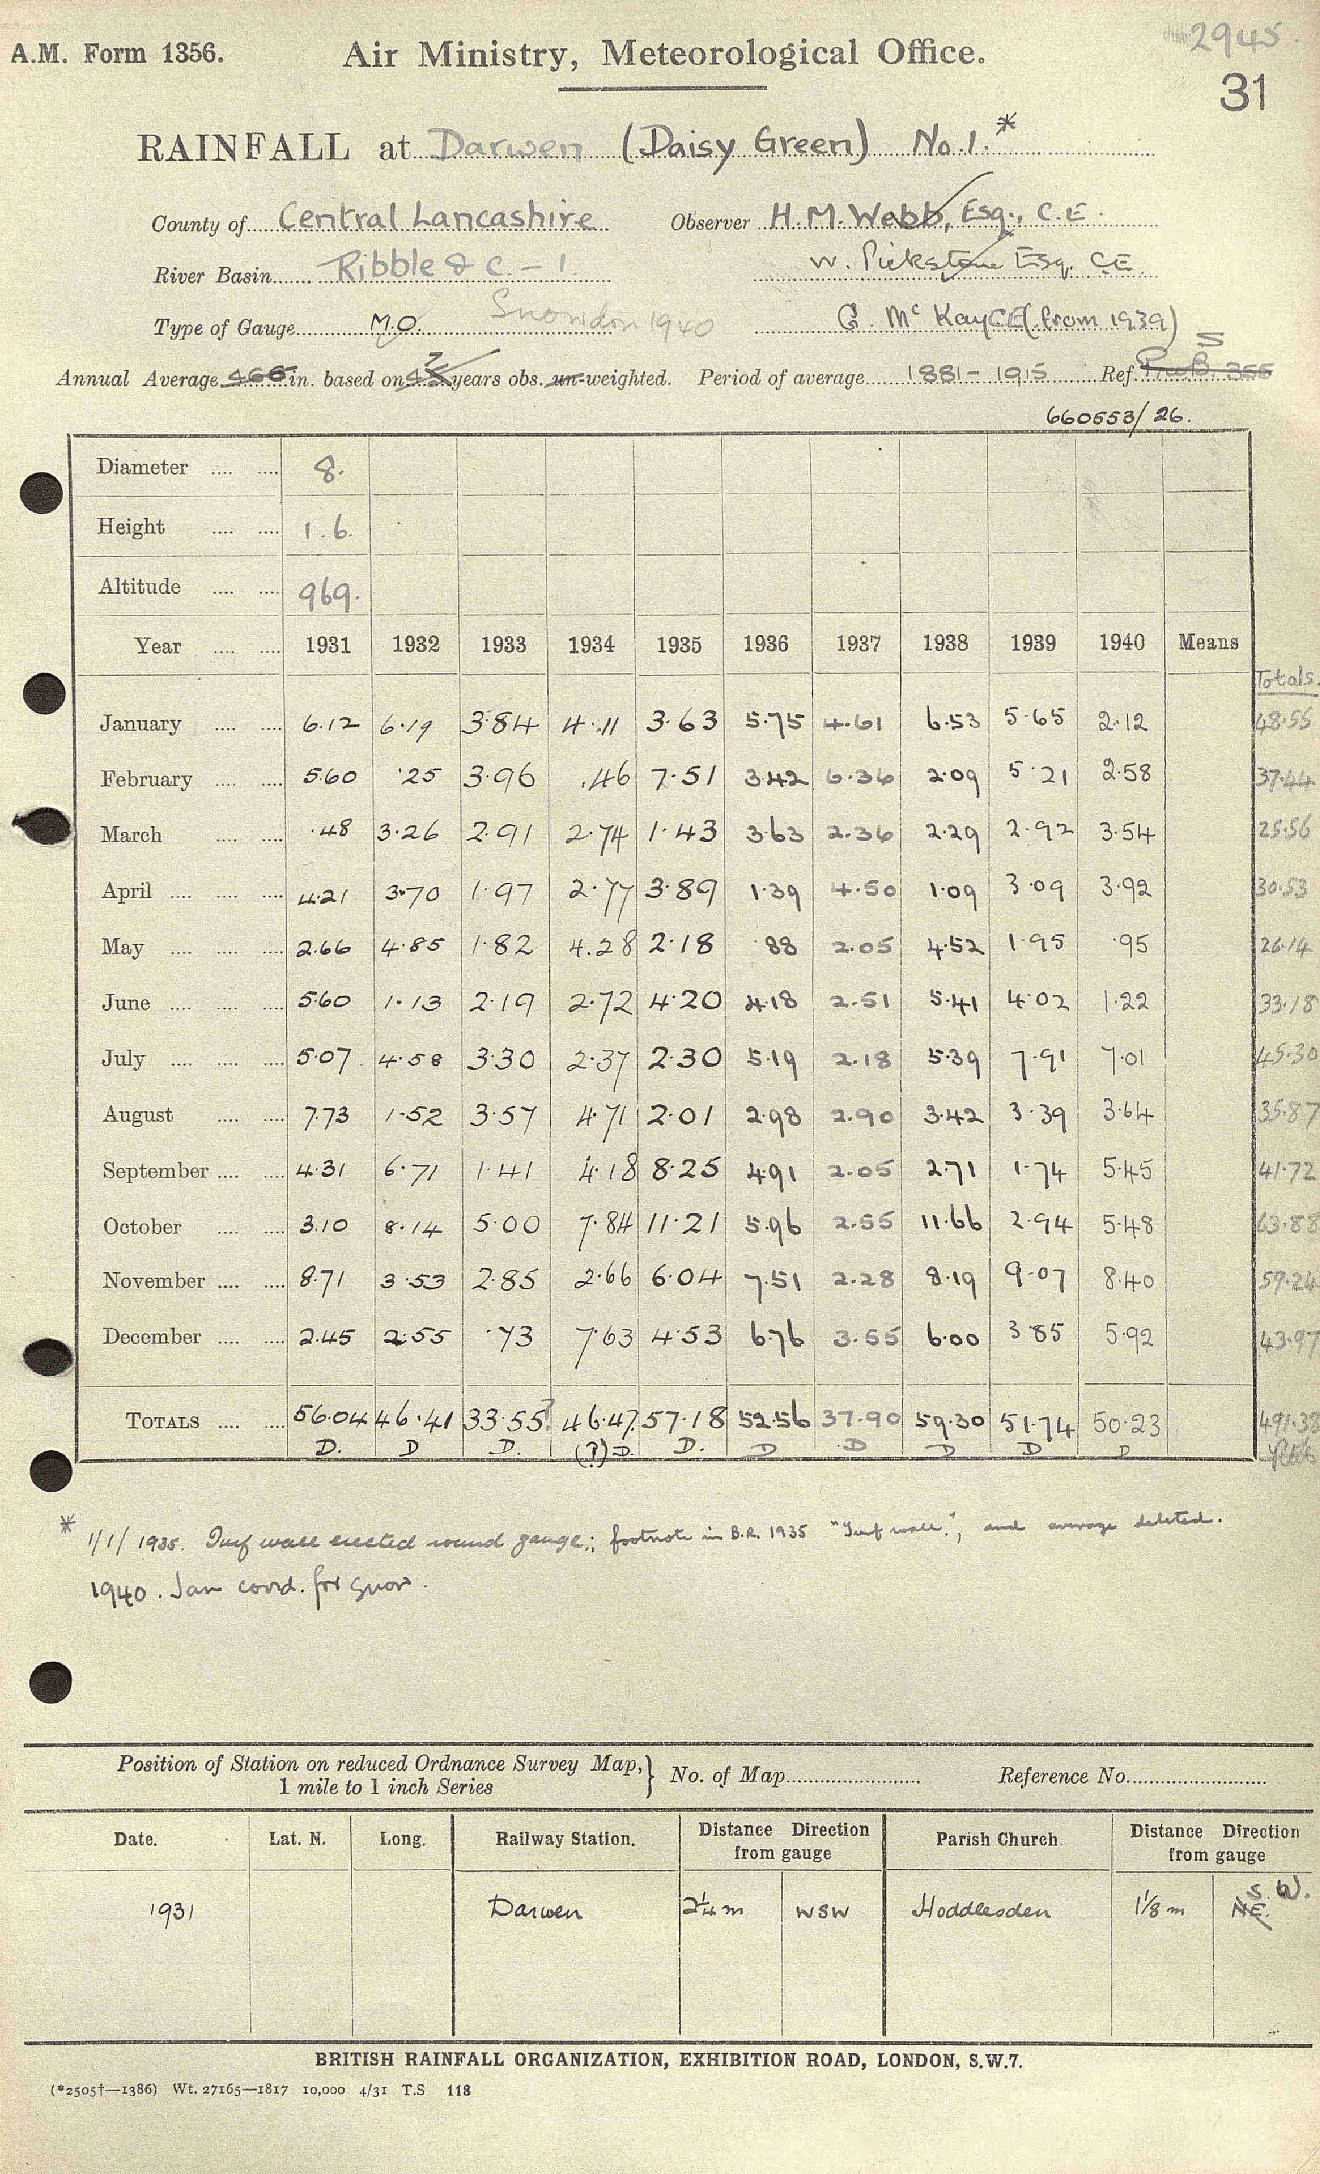 2945.
A.M. Form 1356. Air Ministry, Meteorological Office.
31
RAINFALL at Darwen (Daisy Green) No.1.*
County of Central Lancashire Observer H.M. Webb, Esq., C.E.
River Basin Ribble & C. – 1. W. Pickstone Esq. C.E.
Type of Gauge M.O. Snowdon 1940 G. McKay CE (from 1939)
Annual Average in. based on years obs. un-weighted. Period of average 1881 – 1915 Ref. S
660553/26.
Diameter 8.
Height 1.6.
Altitude 969.
Year 1931 1932 1933 1934 1935 1936 1937 1938 1939 1940 Means
Totals.
January 6.12 6.19 3.84 4.11 3.63 5.75 4.61 6.53 5.65 2.12 48.55
February 5.60 .25 3.96 .46 7.51 3.42 6.36 2.09 5.21 2.58 37.44
March .48 3.26 2.91 2.74 1.43 3.63 2.36 2.29 2.92 3.54 25.56
April 4.21 3.70 1.97 2.77 3.89 1.39 4.50 1.09 3.09 3.92 30.53
May 2.66 4.85 1.82 4.28 2.18 .88 2.05 4.52 1.95 .95 26.14
June 5.60 1.13 2.19 2.72 4.20 4.18 2.51 5.41 4.02 1.22 33.18
July 5.07 4.58 3.30 2.37 2.30 5.19 2.18 5.39 7.91 7.01 45.30
August 7.73 1.52 3.57 4.71 2.01 2.98 2.90 3.42 3.39 3.64 35.87
September 4.31 6.71 1.41 4.18 8.25 4.91 2.05 2.71 1.74 5.45 41.72
October 3.10 8.14 5.00 7.84 11.21 5.96 2.55 11.66 2.94 5.48 63.88
November 8.71 3.53 2.85 2.66 6.04 7.51 2.28 8.19 9.07 8.40 59.24
December 2.45 2.55 .73 7.63 4.53 6.76 3.55 6.00 3.85 5.92 43.97
TOTALS 56.04 46.41 33.55? 46.47. 57.18 52.56 37.90 59.30 51.74 50.23 491.38
D. D D. (?) D D. D D D D D
* 1/1/1935. Turf wall erected round gauge; footnote in B.R. 1935 "Turf wall.", and average deleted.
1940. Jan corrd. for snow.
Position of Station on reduced Ordnance Survey Map, } No. of Map Reference No.
1 mile to 1 inch Series
Date. Lat. N. Long. Railway Station. Distance Direction from gauge Parish Church Distance Direction from gauge
1931 Darwen 2¼ m WSW Hoddlesden 1⅛ m NE. S.W.
BRITISH RAINFALL ORGANIZATION, EXHIBITION ROAD, LONDON, S.W.7.
(*2505†—1386) Wt. 27165—1817 10,000 4/31 T.S 118